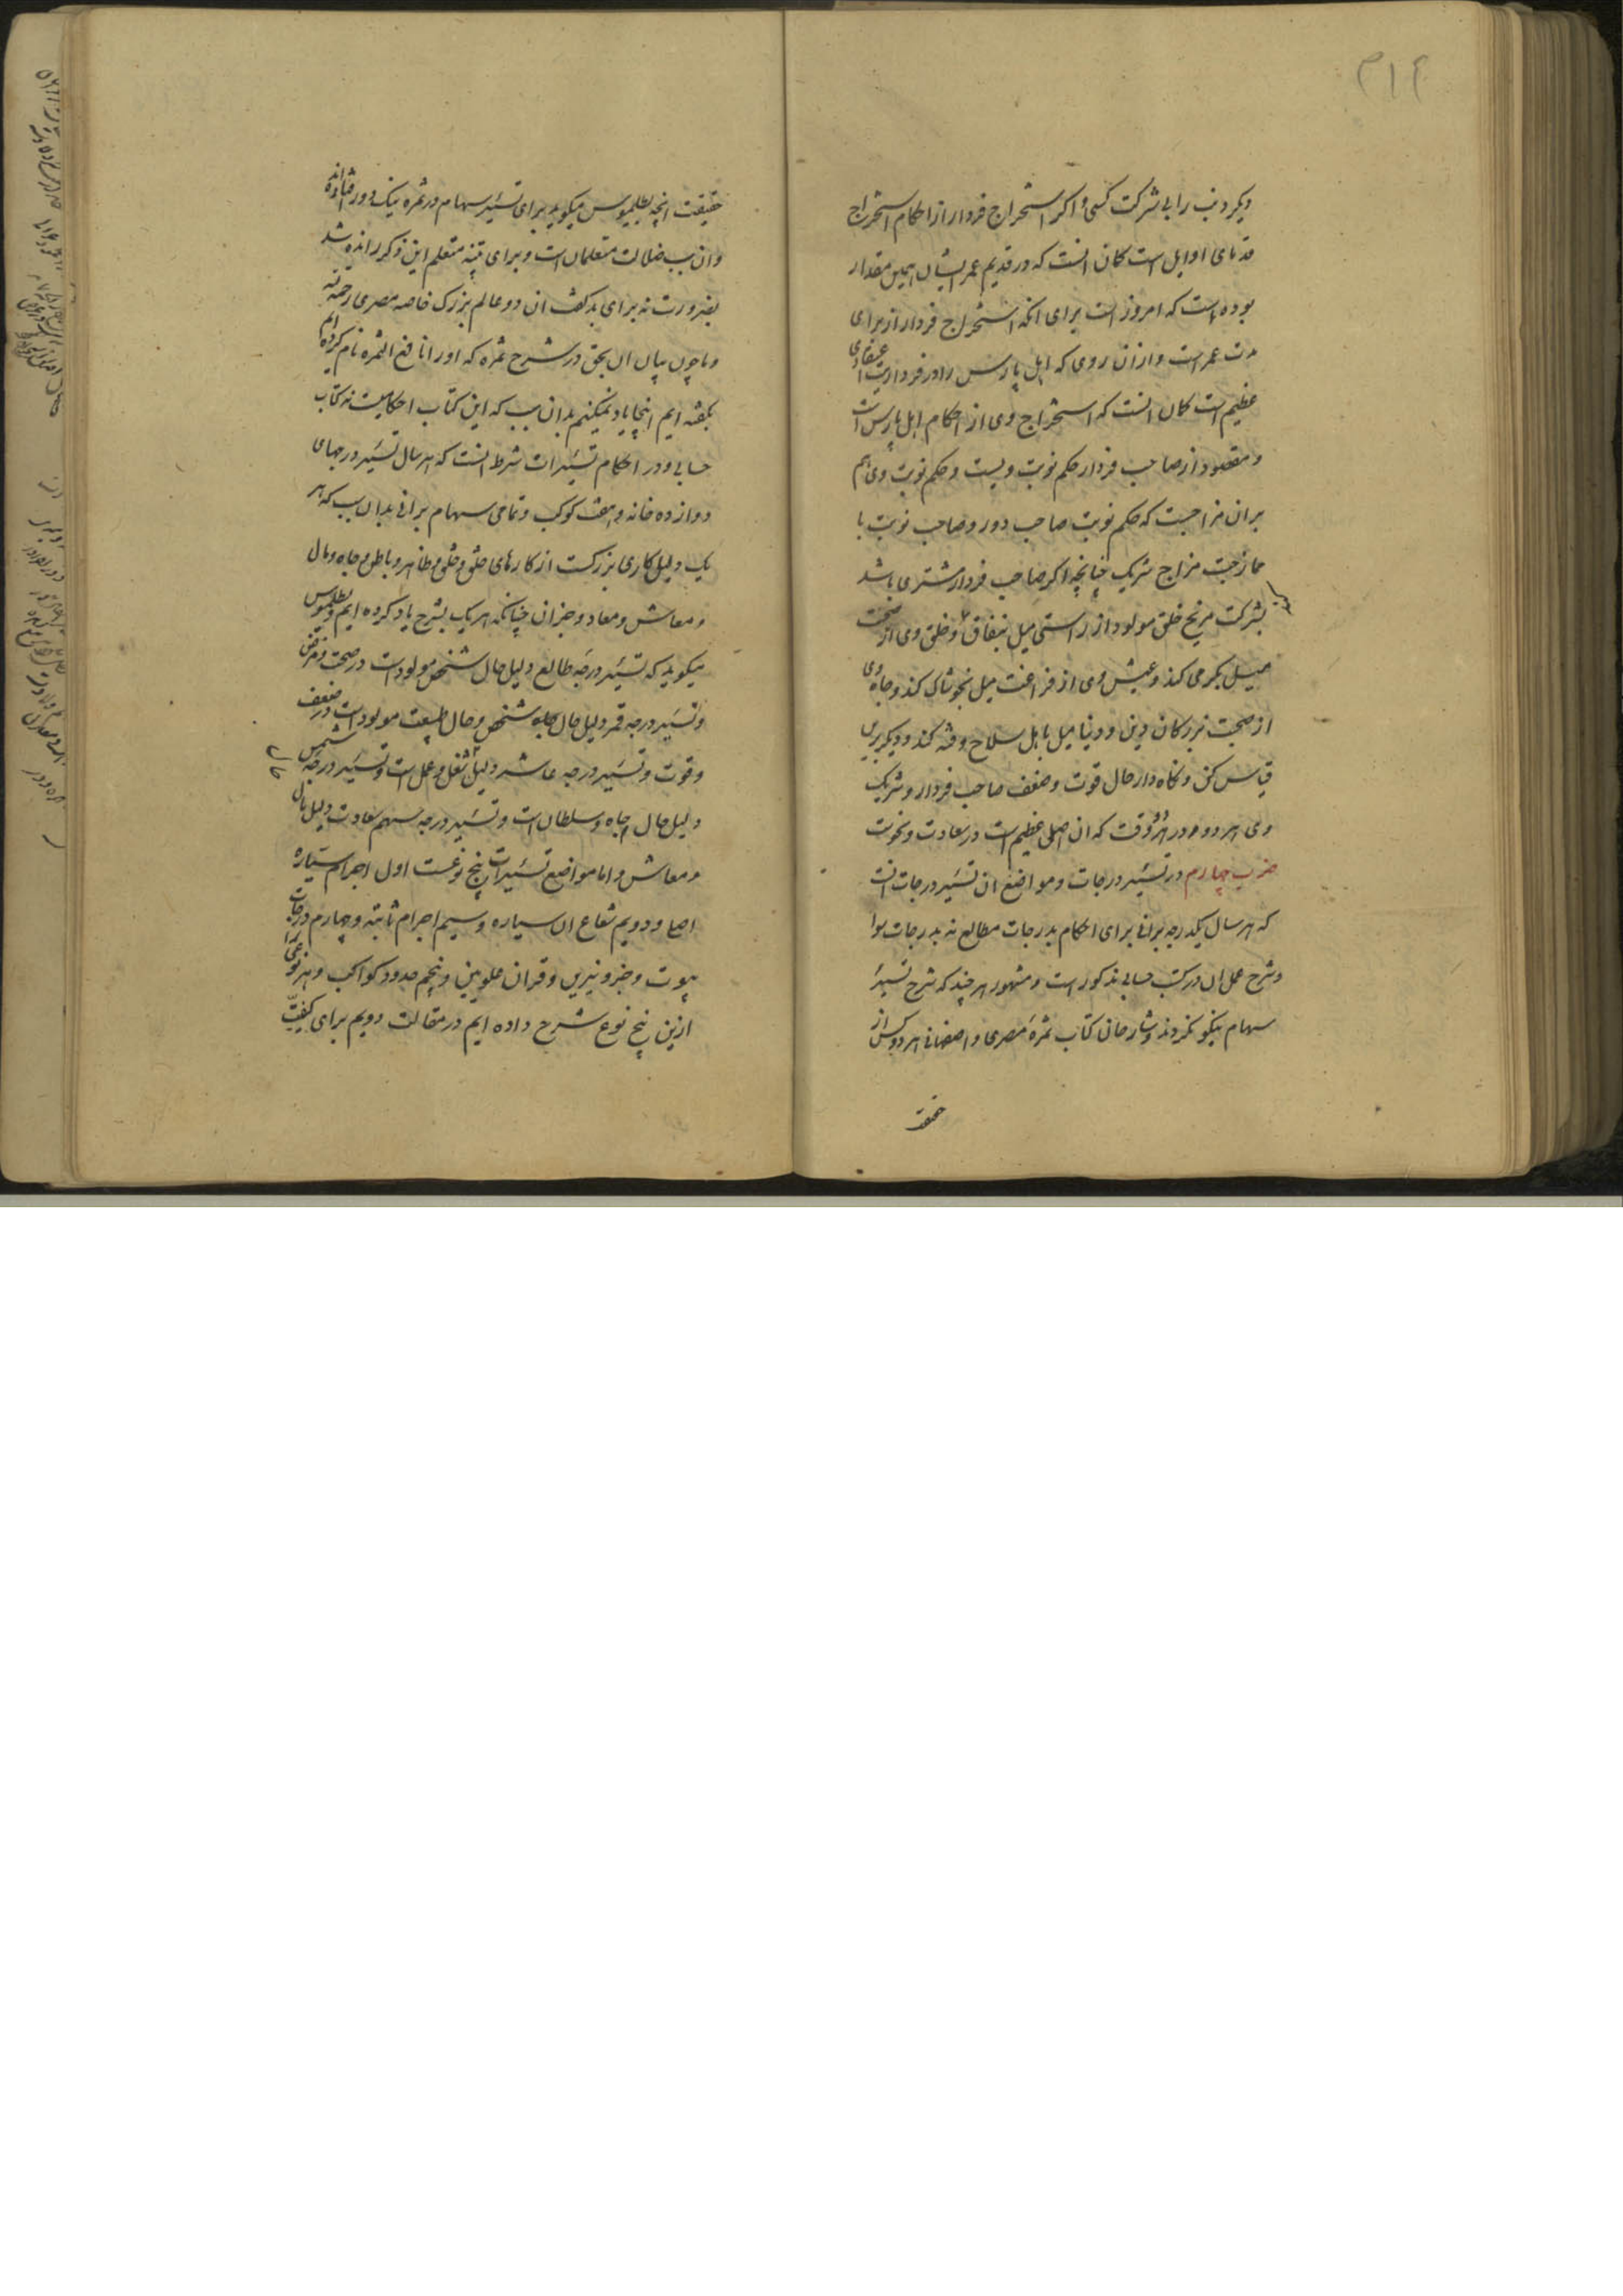 ۳۱۶
دیکر ذنب را بی شرکت کسی و اکر استخراج فردار از احکام استخراج
قدمای اوایل است کمان انست که در قدیم عمر ایشان همین مقدار
بوده است که امروز است برای انکه استخراج فردار از برای
مدت عمرست و از ان روی که اهل پارس را در فرداریت اعتقادی
عظیم است کمان انست که استخراج وی از احکام اهل پارس است
و مقصود از صاحب فردار حکم نوبت ویست و حکم نوبت وی هم
بران مزاجیست که حکم نوبت صاحب دور و صاحب نوبت با
ممازجت مزاج شریک چنانچه اکر صاحب فردار مشتری باشد
بشرکت مریخ خلق مولود از راستی میل بنفاق و خلق وی از صحت
میل بکرمی کند و عیش وی از فراغت میل بخوشاک کند و جاه وی
از صحبت بزرکان دین و دنیا میل باهل سلاح و فتنه کند و دیکر برین
قیاس کن و نکاه دار حال قوت و ضعف صاحب فردار و شریک
وی هر دو در هر دو وقت که ان اصلی عظیم است در سعادت و نحوست
ضرب چهارم در تسییر درجات و مواضع ان تسییر درجات انست
که هر سال یکدرجه برانی برای احکام بدرجات مطالع نه بدرجات سوا
و شرح عمل ان در کتب حسابی مذکور است و مشهور هر چند که شرح تسییر
سهام نیکو نکردند و شارحان کتاب ثمره مصری و اصفهانی هر دو کس از
حقیقت
حقیقت انچه بطلمیوس میکوید برای تسییر سهام در ثمره نیک دور افتاده اند
وان سبب ضلالت متعلمان است و برای تنبیه متعلم این ذکر رانده شد
بضرورت نه برای بد کفت ان دو عالم بزرک خاصه مصری رحمه الله
و ما چون بیان ان بحق در شرح ثمره که اورا نافع الثمره نام کرده ایم
بکفته ایم اینجا یاد نمیکنیم بدان سبب که این کتاب احکامیست نه کتاب
حسابی و در احکام تسییرات شرط انست که هر سال تسییر درجهای
دوازده خانه و هفت کوکب و تمامی سهام برانی بدان سبب که هر
یک دلیل کاری بزرکست از کارهای خلق و خلق و ظاهر و باطن و جاه و مال
و معاش و معاد و جز ان چنانکه هر یک بشرح یاد کرده ایم و بطلمیوس
میکوید که تسییر درجه طالع دلیل حال شخص مولودست در صحت و مرض
و تسییر درجه قمر دلیل حال کلبه شخص و حال طبیعت مولود است در ضعف
و قوت و تسییر درجه عاشر دلیل شغل و عمل است و تسییر درجه شمس
دلیل حال جاه و سلطان است و تسییر درجه سهم سعادت دلیل مال
و معاش و اما مواضع تسییرات پنج نوعست اول اجرام سیاره
اصلی و دویم شعاع ان سیاره و سیم اجرام ثابته و چهارم درجات
بیوت و جزو نیرین و قران علویین و پنجم حدود کواکب و هر نوعی را
ازین پنج نوع شرح داده ایم در مقالت دویم برای کیفیت